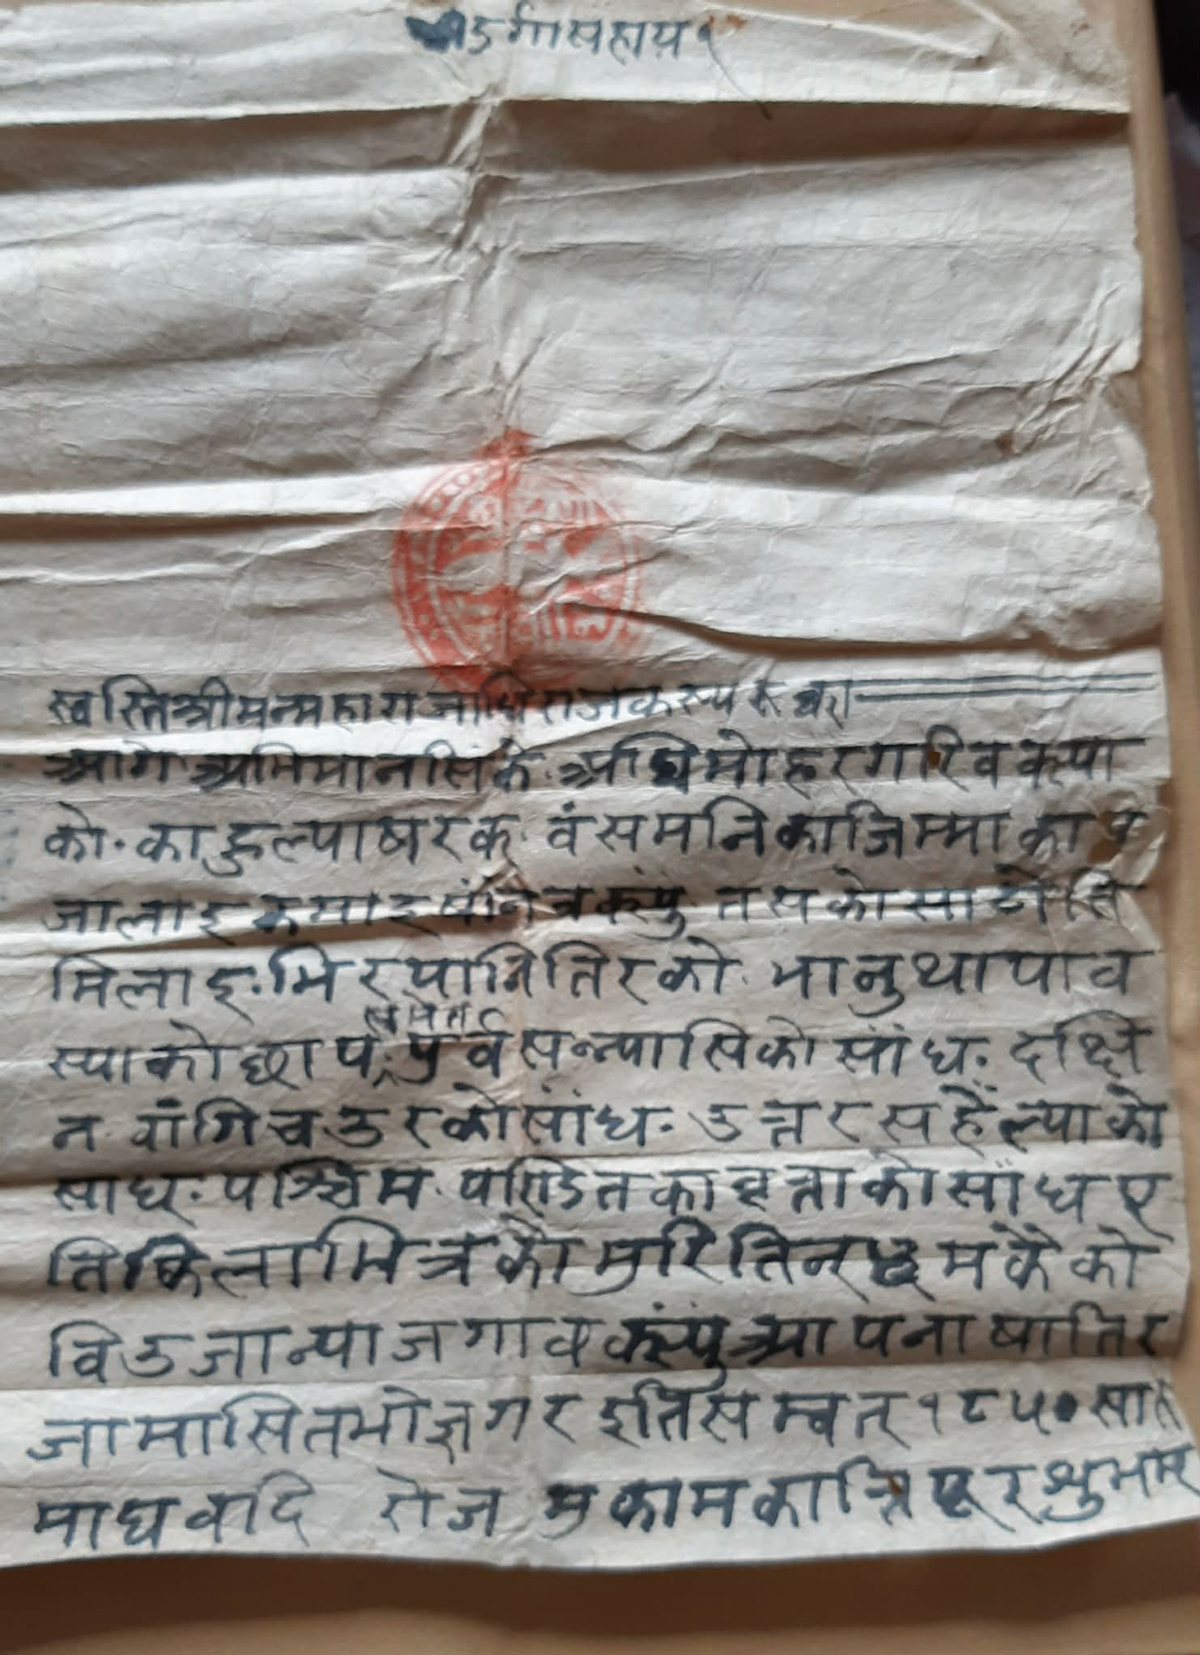 दुर्गासहाय१
स्वस्तिश्रीमन्महाराजाधिराजकस्य रुक्का
आगे अभिमानसिंके अघि मोहरगरिवक्स्या
को. का डुल्याषरक् वंसमनिकाजिम्मा का प
जालाइ कमाइ षानि तसकोसाटो ति
मिलाइ. भिरपानितिरको. भानुथापाव
स्याकोछाप् समेत पुर्व सन्यासिको साँध. दक्षि
न वांगिचउरकोसाँध. उत्तर सहैंल्याको
साध. पश्चिम. पण्डितका हाताकोसाँध ए
तिकिल्लाभित्रको मुरितिन् मकैको
विउजान्याजगाव वक्स्यूं आपनाषातिर
जामासितभोग्गर इतिसम्वत् १८५० साल
माघवदि रोज मुकामकान्तिपूर शुभम्